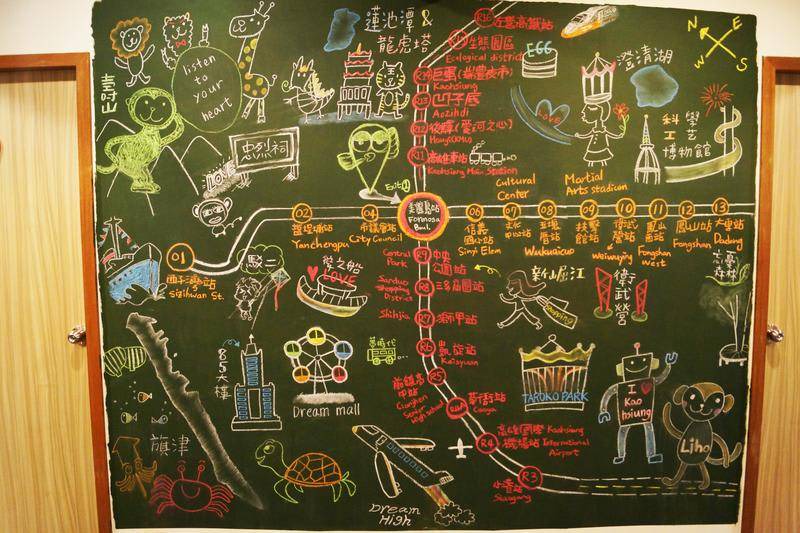 蓮池潭 &
龍虎塔
R16 左營高鐵站
R15 生態園區
Ecological district
EGG
N
E
W
S
澄清湖
listen
to
your
heart
壽山
R14 巨蛋
Kaohsiung
R13 凹子底
Aozihdi
R12 後驛 (愛河之心)
R11 高雄車站
Kaohsiung Main Station
LOVE
科工
學芸
博物館
忠烈祠
LOVE
Exit
Cultural
Center
Martial
Arts stadium
美麗島站
Formosa
Boul.
01
西子灣站
Sizihwan St.
02
鹽埕埔站
Yanchengpu
04
市議會站
City Council
06
信義
國小站
Sinyi Elem
07
文化
中心站
08
五塊
厝站
Wukuaicuo
09
技擊
館站
10
衛武
營站
Weiwuying
11
鳳山
西站
Fongshan
West
12
鳳山站
Fongshan
13
大東站
Dadong
R9 中央
公園站
Central
Park
R8 三多商圈站
Sanduo
Shopping
District
R7 獅甲站
Shihjia
R6 凱旋站
Kaisyuan
R5
前鎮高
中站
Cianjhen
Senior
High school
R4A 草衙站
Caoya
R4 高雄國際
機場站
Kaohsiung
International
Airport
R3
小港站
Siaogang
駁二
愛之船
LOVE
新堀江
shopping
衛武營
85大樓
Dream mall
夢時代
TAROKO PARK
I
Kao
hsiung
Liho
旗津
Dream
High